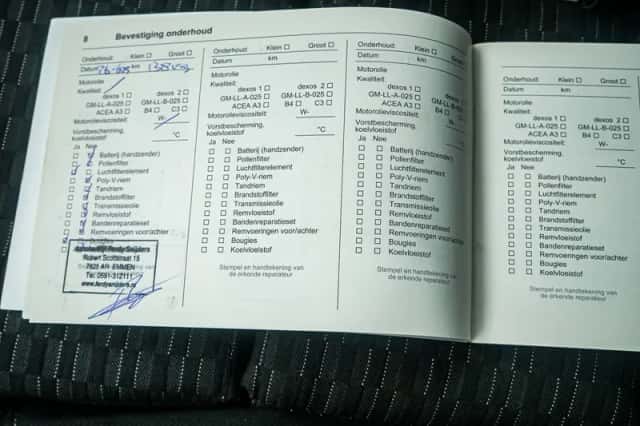 8 Bevestiging onderhoud
Onderhoud: Klein Groot
Datum km
Motorolie
Kwaliteit:
dexos 1 dexos 2
GM-LL-A-025 GM-LL-B-025
ACEA A3 B4 C3
Motorolieviscositeit: W-
Vorstbescherming, koelvloeistof °C
Ja Nee
Batterij (handzender)
Pollenfilter
Luchtfilterelement
Poly-V-riem
Tandriem
Brandstoffilter
Transmissieolie
Remvloeistof
Bandenreparatieset
Remvoeringen voor/achter
Bougies
Robert Scottstraat 15
7825 AH EMMEN
Tel: 0591-312111
Onderhoud: Klein Groot
Datum km
Motorolie
Kwaliteit:
dexos 1 dexos 2
GM-LL-A-025 GM-LL-B-025
ACEA A3 B4 C3
Motorolieviscositeit: W-
Vorstbescherming,
koelvloeistof °C
Ja Nee
Batterij (handzender)
Pollenfilter
Luchtfilterelement
Poly-V-riem
Tandriem
Brandstoffilter
Transmissieolie
Remvloeistof
Bandenreparatieset
Remvoeringen voor/achter
Bougies
Koelvloeistof
Stempel en handtekening van
de erkende reparateur
Onderhoud: Klein Groot
Datum km
Motorolie
Kwaliteit:
dexos 1 dexos 2
GM-LL-A-025 GM-LL-B-025
ACEA A3 B4 C3
Motorolieviscositeit: W-
Vorstbescherming,
koelvloeistof °C
Ja Nee
Batterij (handzender)
Pollenfilter
Luchtfilterelement
Poly-V-riem
Tandriem
Brandstoffilter
Transmissieolie
Remvloeistof
Bandenreparatieset
Remvoeringen voor/achter
Bougies
Koelvloeistof
Stempel en handtekening van
de erkende reparateur
Onderhoud: Klein Groot
Datum km
Motorolie
Kwaliteit:
dexos 1 dexos 2
GM-LL-A-025 GM-LL-B-025
ACEA A3 B4 C3
Motorolieviscositeit: W-
Vorstbescherming,
koelvloeistof °C
Ja Nee
Batterij (handzender)
Pollenfilter
Luchtfilterelement
Poly-V-riem
Tandriem
Brandstoffilter
Transmissieolie
Remvloeistof
Bandenreparatieset
Remvoeringen voor/achter
Bougies
Koelvloeistof
Stempel en handtekening van
de erkende reparateur